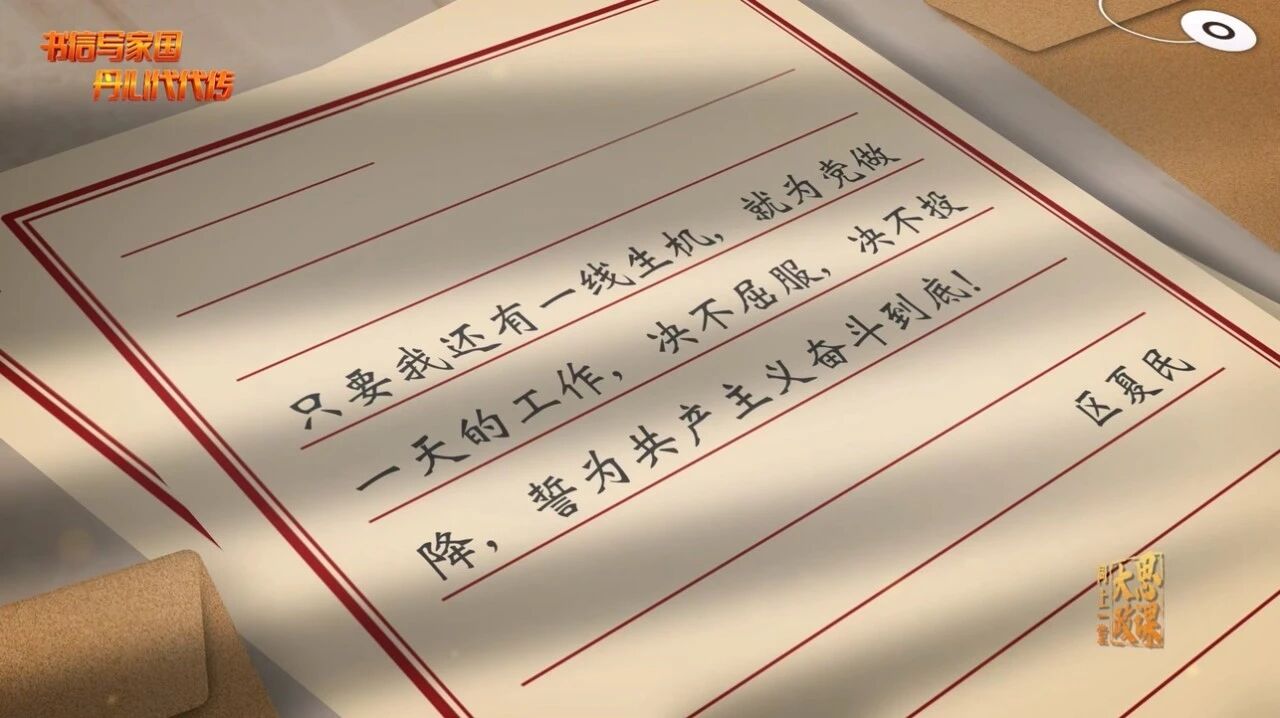 书信写家国
丹心代代传
只要我还有一线生机，就为党做
一天的工作，决不屈服，决不投
降，誓为共产主义奋斗到底！
区夏民
网上一堂
大思政课